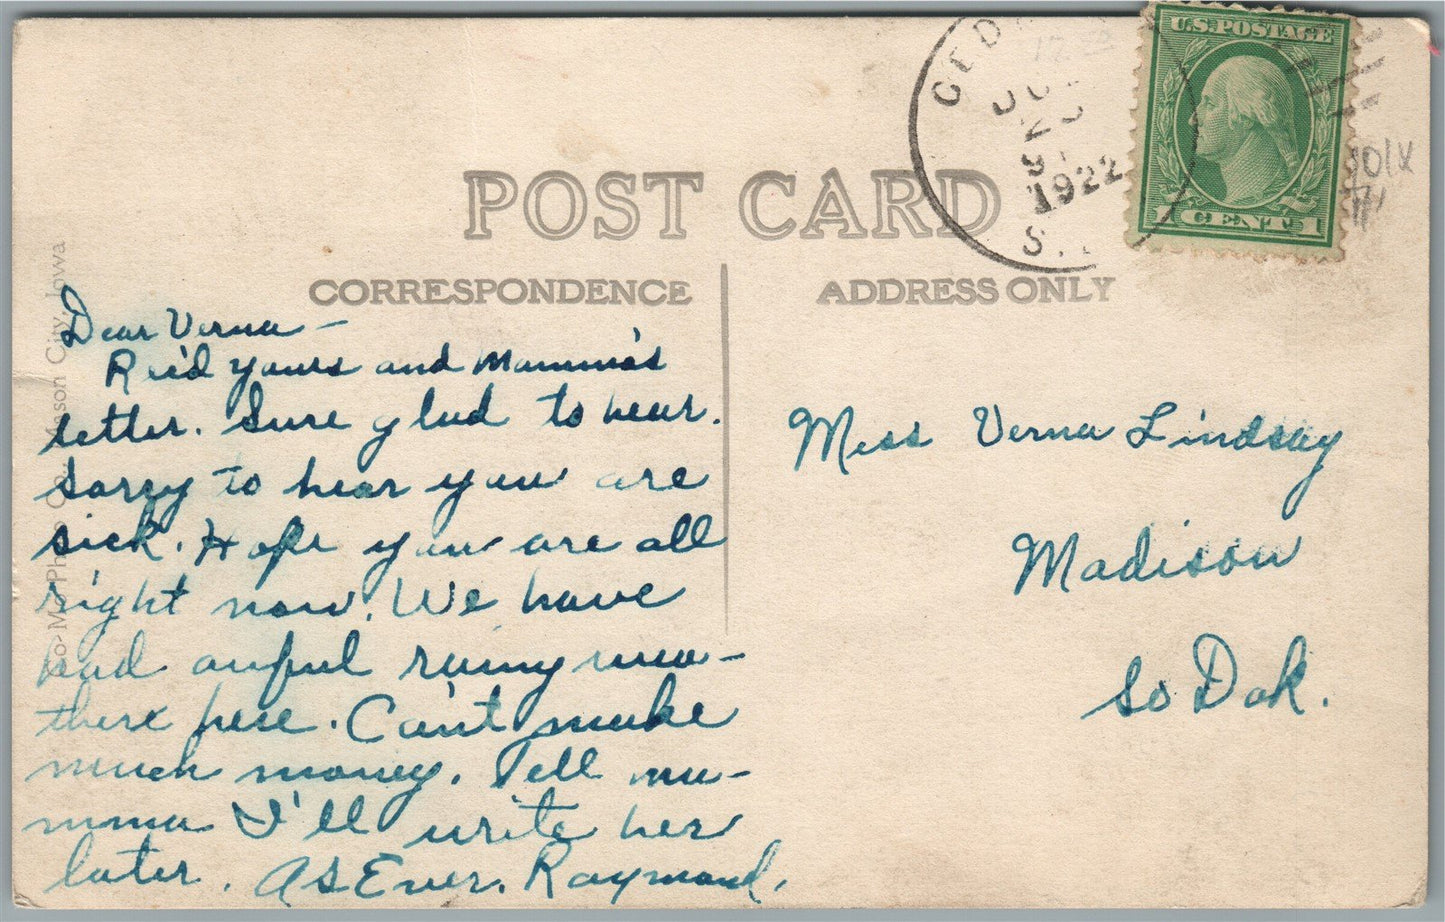 U.S. POSTAGE
1 CENT 1
1922
POST CARD
CORRESPONDENCE
ADDRESS ONLY
Dear Verna –
Rec'd yours and Mamma's
letter. Sure glad to hear.
Sorry to hear you are
sick. Hope you are all
right now. We have
had awful rainy wea-
there here. Can't make
much money. Tell ma-
mma I'll write her
later. As Ever. Raymond.
Miss Verna Lindsay
Madison
So Dak.
Mason City, Iowa